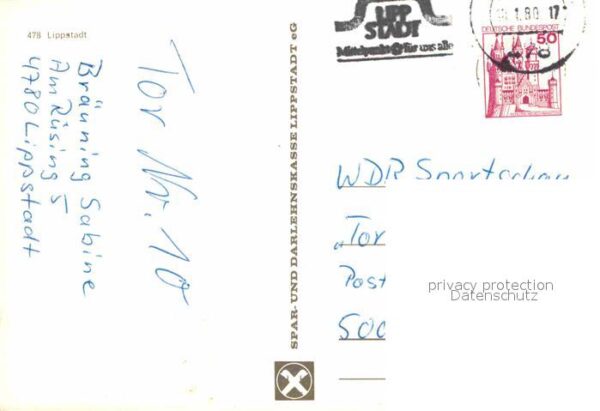 478 Lippstadt
Bräuning Sabine
Am Rüsing 5
4780 Lippstadt
Tor Nr. 10
SPAR- UND DARLEHNSKASSE LIPPSTADT eG
LIPP
STADT
Mittelpunkt für uns alle
1.80 17
478
50
DEUTSCHE BUNDESPOST
WDR Sportschau
„Tor
Post
500
privacy protection
Datenschutz